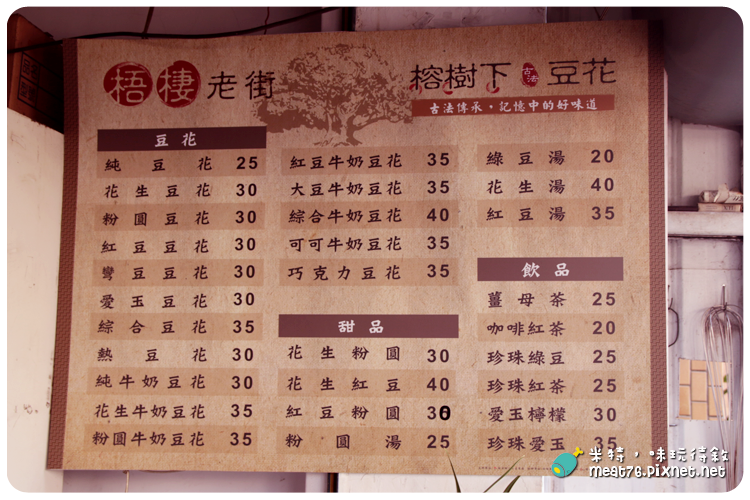 梧棲老街
榕樹下古法豆花
古法傳承，記憶中的好味道
豆花
純豆花 25
花生豆花 30
粉圓豆花 30
紅豆豆花 30
彎豆豆花 30
愛玉豆花 30
綜合豆花 35
熱豆花 30
純牛奶豆花 30
花生牛奶豆花 35
粉圓牛奶豆花 35
紅豆牛奶豆花 35
大豆牛奶豆花 35
綜合牛奶豆花 40
可可牛奶豆花 35
巧克力豆花 35
甜品
花生粉圓 30
花生紅豆 40
紅豆粉圓 30
粉圓湯 25
綠豆湯 20
花生湯 40
紅豆湯 35
飲品
薑母茶 25
咖啡紅茶 20
珍珠綠豆 25
珍珠紅茶 25
愛玉檸檬 30
珍珠愛玉 35
米特，味玩待敘
meat76.pixnet.net